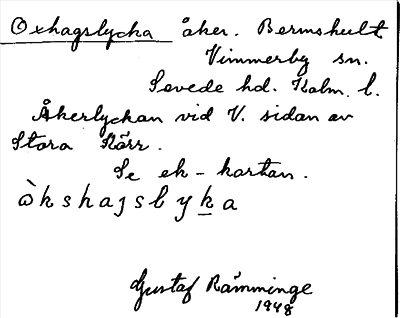 Oxhagslycka åker. Bermshult
Vimmerby sn.
Sevede hd. Kalm. l.
Åkerlyckan vid V. sidan av
Stora Rörr.
Se ek-kartan.
ὼkshaȷslyka
Gustaf Rämminge
1948